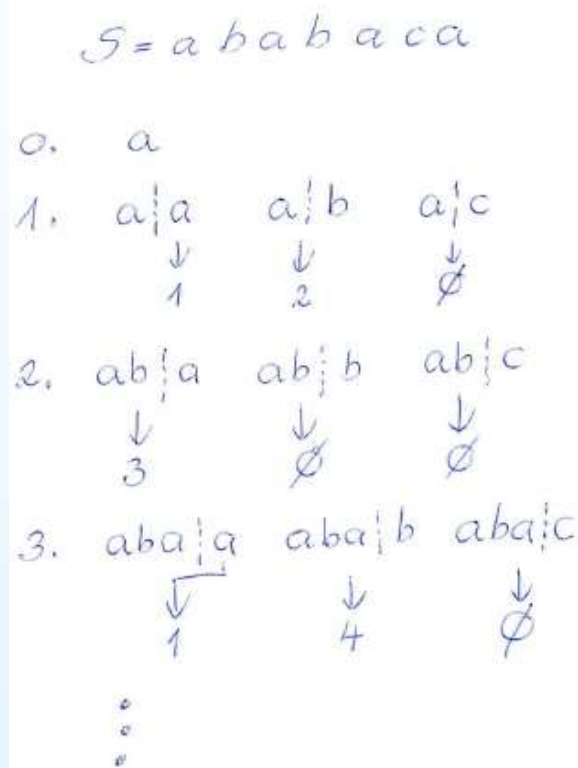 S = a b a b a c a
0. a
1. a¦a a¦b a¦c
↓ ↓ ↓
1 2 ∅
2. ab¦a ab¦b ab¦c
↓ ↓ ↓
3 ∅ ∅
3. aba¦a aba¦b aba¦c
↓ ↓ ↓
1 4 ∅
⋮